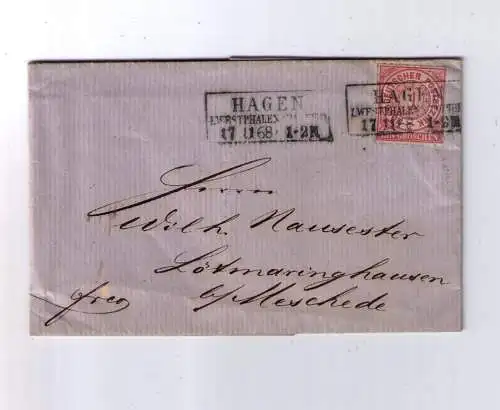 HAGEN
I.WESTPHALEN
17 11 68 1-2N
HAGE
I.WESTPHALEN
17 11
GROSCHEN
Herrn
Wilh. Nausester
Lötmaringhausen
b/ Meschede
frco